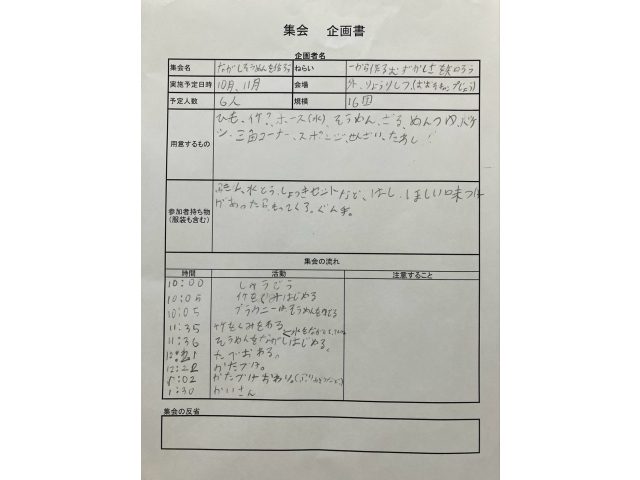 集会 企画書
企画者名
集会名 ながしそうめんを作ろう ねらい 一から作るむずかしさを知ろう
実施予定日時 10月、11月 会場 外、りょうりしつ
予定人数 6人 規模 16団
用意するもの
ひも、竹?、ホース(水)、そうめん、ざる、めんつゆ、バケ
ツ、三角コーナー、スポンジ、せんざい、たわし!
参加者持ち物
(服装も含む)
ふきん、水とう、しょっきセットなど、はし、ほしい味つけ
があったらもってくる。ぐん手。
集会の流れ
時間 活動 注意すること
10:00 しゅうごう
10:05 竹をくみはじめる
10:05 ブラウニーはそうめんをゆでる
11:35 竹をくみをわる
11:36 そうめんをながしはじめる。
たべおわる。
かたづけ。
かたづけおわり。
1:30 かいさん
集会の反省